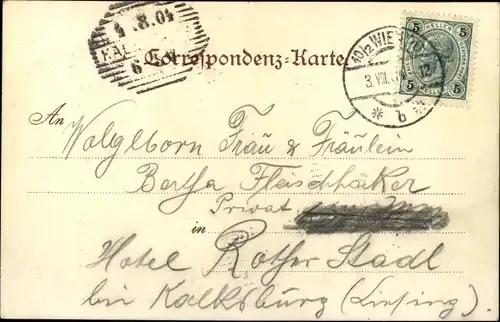 4. 8. 04
KAL
6
Correspondenz-Karte.
10/2 WIEN
3. VIII.
12
* b *
5 HELLER 5
5 HELLER 5
An Wolglborn Frau & Fräulein
Bertha Fleischhäker
Privat
in
Hotel Rother Stadl
bei Kalksburg (Liesing)